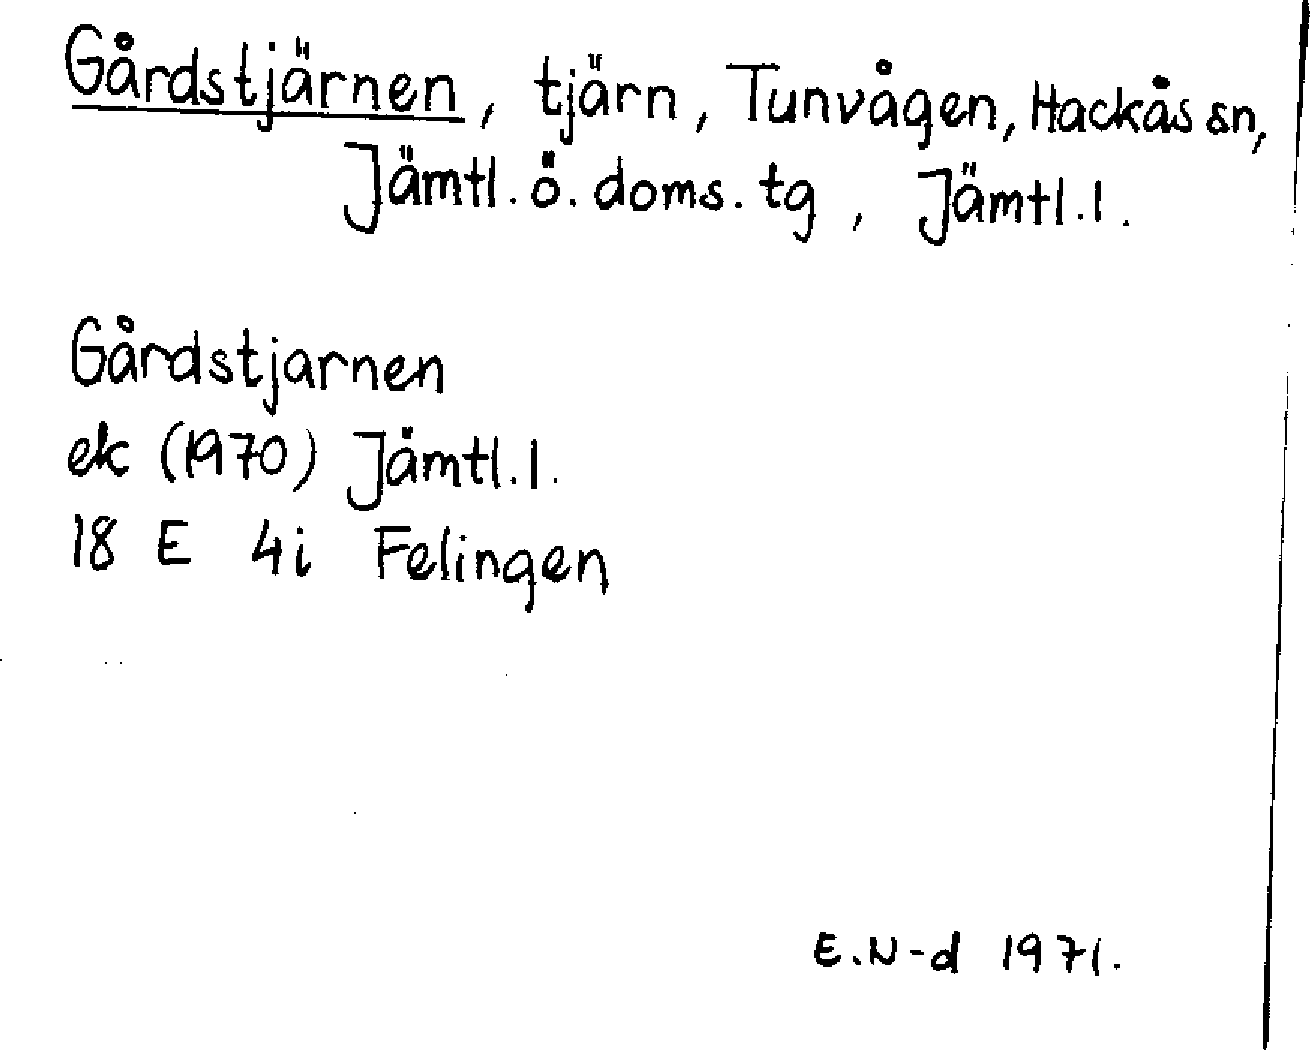 Gårdstjärnen, tjärn, Tunvågen, Hackås sn,
Jämtl. ö. doms. tg, Jämtl. l.
Gårdstjarnen
ek (1970) Jämtl. l.
18 E 4i Felingen
E.N-d 1971.